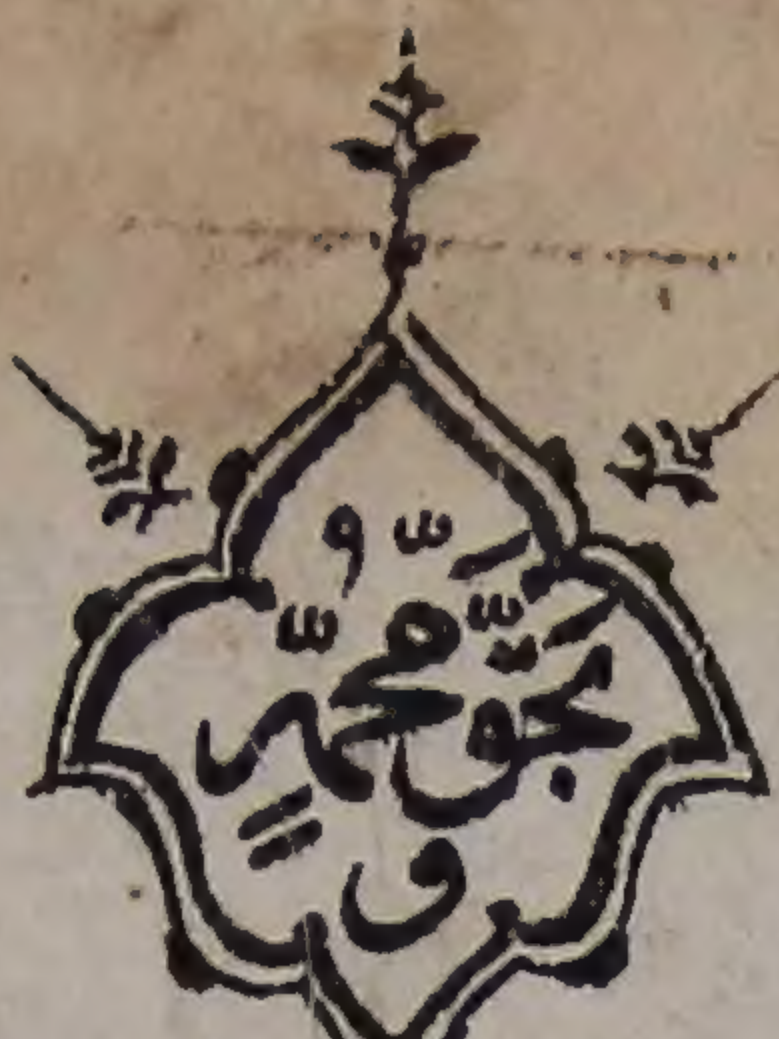 بِحَقِّ مُحَمَّدٍ
و